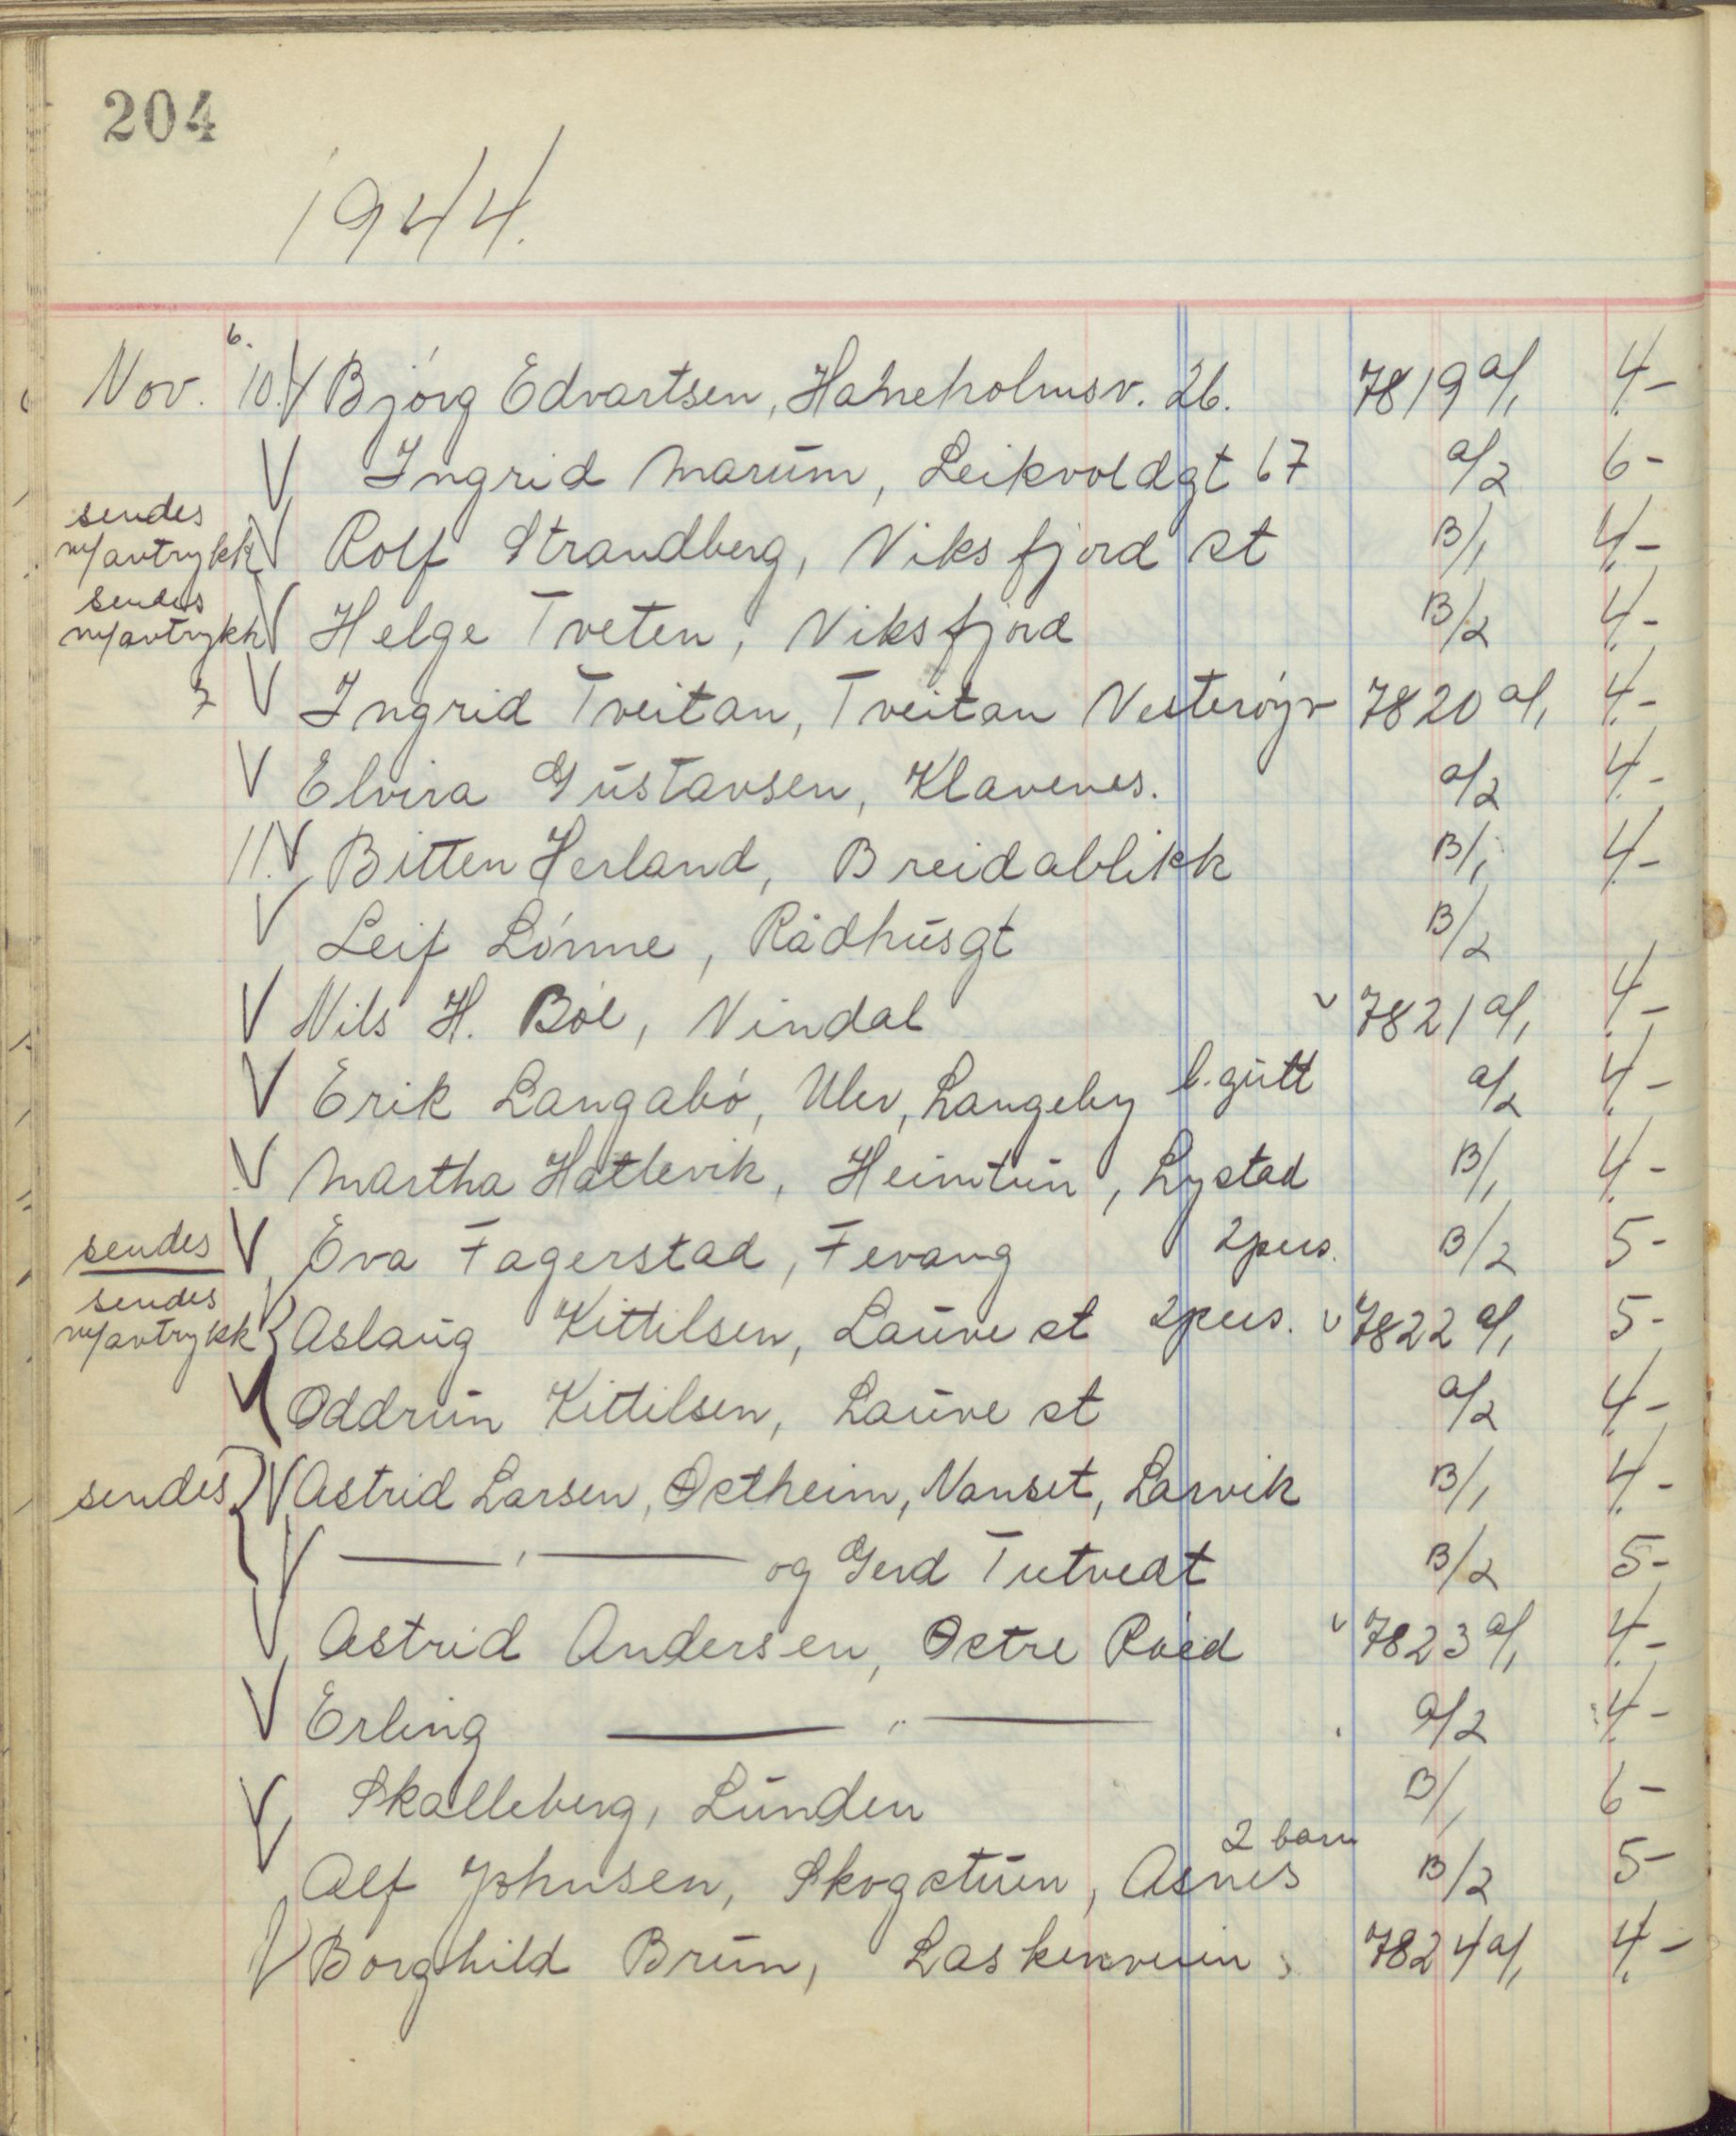 204
1944.
6.
Nov. 10. V Bjórg Edvartsen, Hahneholmsv. 26. 7819 a/1 4.-
V Ingrid Marum, Leikvoldgt 67 a/2 6-
sendes
m/avtrykk V Rolf Strandberg, Viksfjord st B/1 4.-
sendes
m/avtrykk V Helge Tveten, Viksfjord B/2 4.-
7 V Ingrid Tveitan, Tveitan Vesterøyv 7820 a/1 4.-
V Elvira Gustavsen, Klavenes. a/2 4.-
11. V Bitten Herland, Breidablikk B/1 4.-
V Leif Lónne, Rådhusgt B/2
V Nils H. Bøe, Vindal v 7821 a/1 4.-
V Erik Langabó, Ulev, Langeby l.gutt a/2 4.-
V Martha Hatlevik, Heimtun, Lystad B/1 4.-
sendes V Eva Fagerstad, Fevang 2pers. B/2 5-
sendes
m/avtrykk { Aslaug Kittilsen, Lauve st 2pers. v 7822 a/1 5-
V Oddrun Kittilsen, Lauve st a/2 4.-
sendes } V Astrid Larsen, Østheim, Nanset, Larvik B/1 4.-
V — , — og Gerd Tutvedt B/2 5-
V Astrid Andersen, Østre Røed v 7823 a/1 4.-
V Erling — " — a/2 4.-
V Skalleberg, Lunden B/1 6-
2 barn
Alf Johnsen, Skogstuen, Asnes B/2 5-
V Borghild Brun, 7824 a/1 4.-